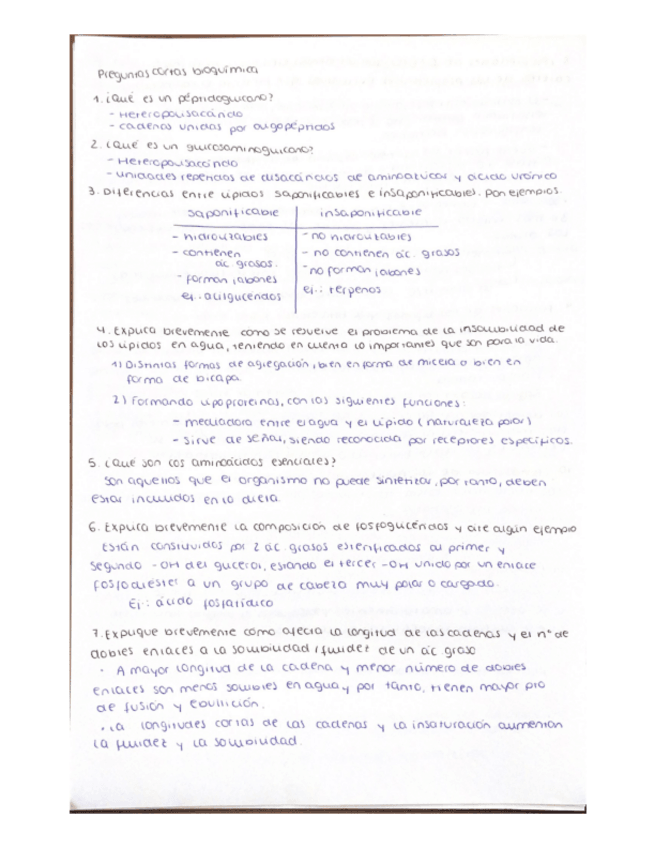 Preguntas cortas bioquímica
1. ¿Qué es un péptidoglucano?
- Heteropolisacárido
- cadenas unidas por oligopéptidos
2. ¿Qué es un glucosaminoglucano?
- Heteropolisacárido
- unidades repetidas de disacáridos de aminoazúcar y ácido urónico
3. Diferencias entre lípidos saponificables e insaponificables. Pon ejemplos.
saponificable | insaponificable
- hidrolizables | - no hidrolizables
- contienen | - no contienen ác. grasos
ác. grasos. | - no forman jabones
- forman jabones | ej.: terpenos
ej.: acilglicéridos
4. Explica brevemente como se resuelve el problema de la insolubilidad de
los lípidos en agua, teniendo en cuenta lo importantes que son para la vida.
1) Distintas formas de agregación, bien en forma de micela o bien en
forma de bicapa.
2) Formando lipoproteínas, con las siguientes funciones:
- mediadora entre el agua y el lípido (naturaleza polar)
- sirve de señal, siendo reconocida por receptores específicos.
5. ¿Qué son los aminoácidos esenciales?
Son aquellos que el organismo no puede sintetizar, por tanto, deben
estar incluidos en la dieta.
6. Explica brevemente la composición de fosfoglicéridos y cite algún ejemplo
Están construidos por 2 ác. grasos esterificados al primer y
segundo -OH del glicerol, estando el tercer -OH unido por un enlace
fosfodiéster a un grupo de cabeza muy polar o cargado.
Ej.: ácido fosfatídico
7. Explique brevemente cómo afecta la longitud de las cadenas y el nº de
dobles enlaces a la solubilidad / fluidez de un ác graso
· A mayor longitud de la cadena y menor número de dobles
enlaces son menos solubles en agua y por tanto, tienen mayor pto
de fusión y ebullición.
· La longitudes cortas de las cadenas y la insaturación aumentan
la fluidez y la solubilidad.